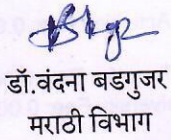 डॉ.वंदना बडगुजर
मराठी विभाग